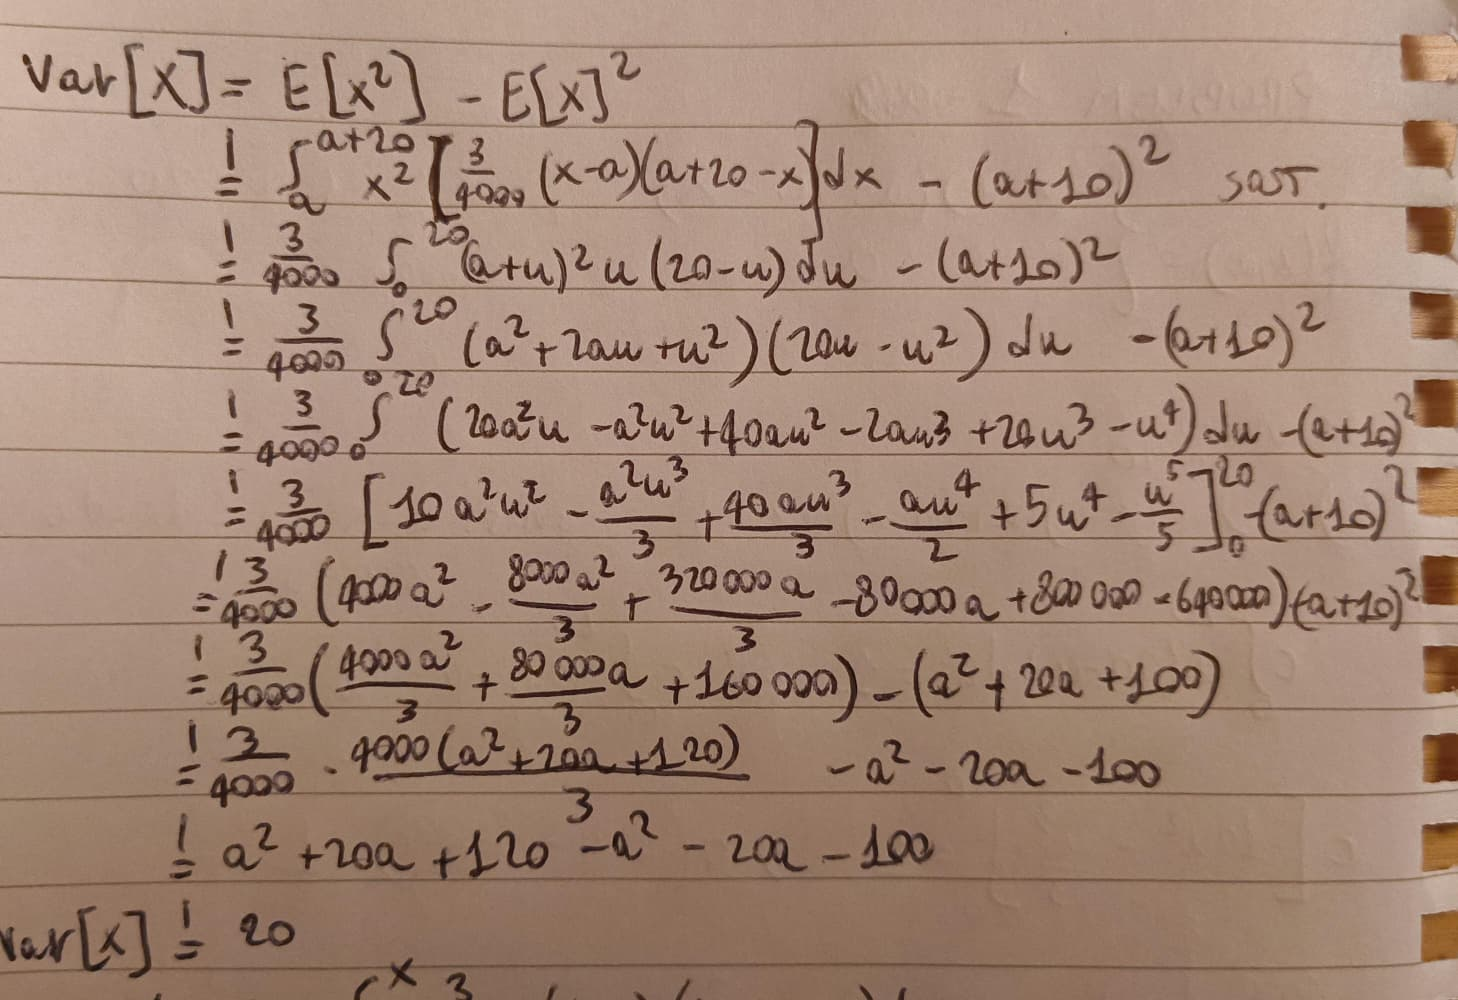 Var[X] = E[x²] - E[X]²
!= ∫ₐᵃ⁺²⁰ x² [3/4000 (x-a)(a+20-x)] dx - (a+10)² sost.
!= 3/4000 ∫₀²⁰ (a+u)² u (20-u) du - (a+10)²
!= 3/4000 ∫₀²⁰ (a² + 2au + u²)(20u - u²) du - (a+10)²
!= 3/4000 ∫₀²⁰ (20a²u - a²u² + 40au² - 2au³ + 20u³ - u⁴) du - (a+10)²
!= 3/4000 [10a²u² - a²u³/3 + 40au³/3 - au⁴/2 + 5u⁴ - u⁵/5]₀²⁰ - (a+10)²
!= 3/4000 (4000a² - 8000a²/3 + 320000a/3 - 80000a + 800000 - 640000) - (a+10)²
!= 3/4000 (4000a²/3 + 80000a/3 + 160000) - (a² + 20a + 100)
!= 3/4000 · 4000(a² + 20a + 120)/3 - a² - 20a - 100
!= a² + 20a + 120 - a² - 20a - 100
Var[X] != 20